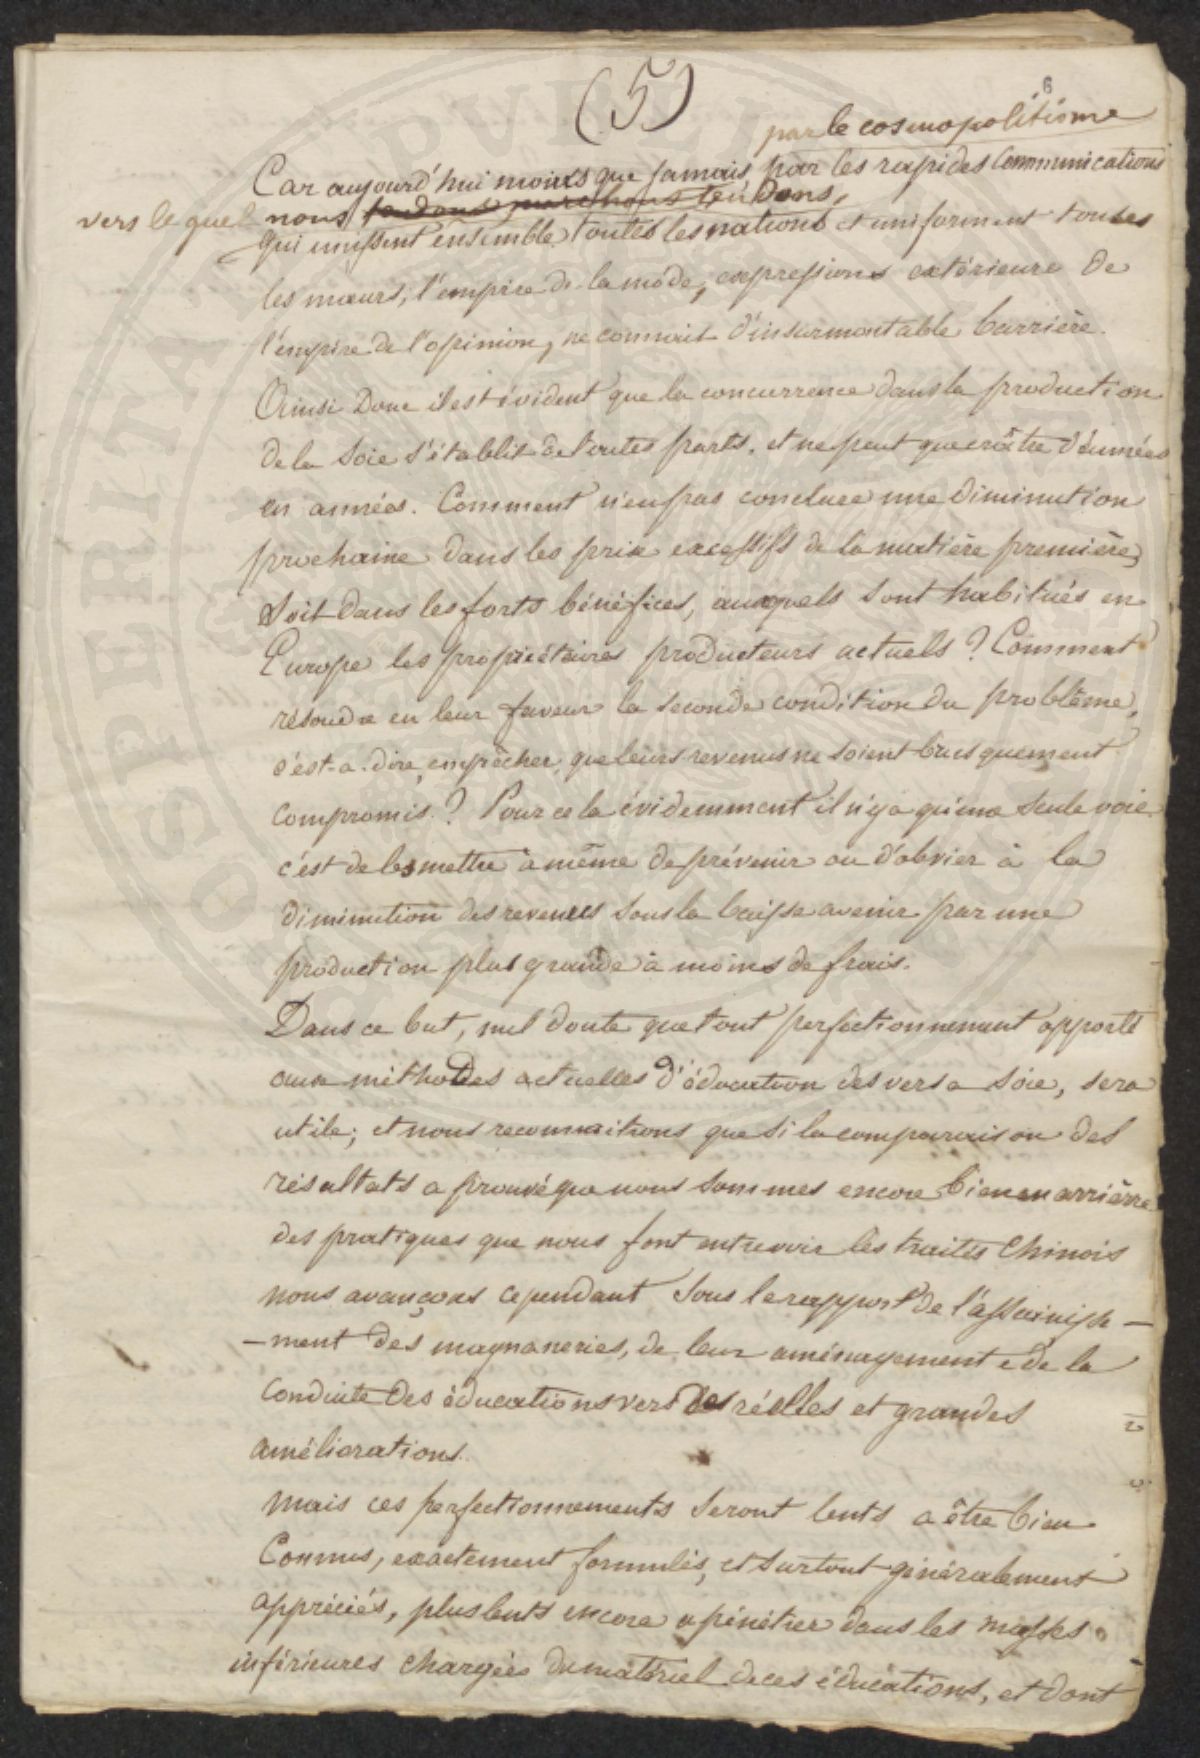 (5)
6
par le cosmopolitisme
Car aujourd'hui moins que jamais, par les rapides Communications
vers lequel nous tendons marchons tendons,
qui unissent ensemble toutes les nations et uniforment toutes
les mœurs, l'empire de la mode, expressions extérieure de
l'empire de l'opinion, ne connait d'insurmontable barrière.
Ainsi Donc il est évident que la concurrence dans la production
de la Soie s'établit de toutes parts, et ne peut que croître d'années
en années. Comment n'en pas conclure une diminution
prochaine dans les prix excessifs de la matière première,
Soit dans les forts bénéfices, auxquels sont habitués en
Europe les propriétaires producteurs actuels ? Comment
résoudre en leur faveur la seconde condition du problême,
c'est-a-dire, empêcher que leurs revenus ne soient brusquement
compromis ? Pour cela évidemment il n'y a qu'une seule voie
c'est de les mettre à même de prévenir ou d'obvier à la
diminution des revenus sous la baisse avenir par une
production plus grande à moins de frais.
Dans ce but, nul doute que tout perfectionnement apporté
aux méthodes actuelles d'éducation des vers a soie, sera
utile; et nous reconnaitrons que si la comparaison des
résultats a prouvé que nous sommes encore bien en arrière
des pratiques que nous font entrevoir les traités Chinois
nous avançons cependant sous le rapport de l'assainisse-
-ment des magnaneries, de leur aménagement e de la
Conduite des éducations vers des réelles et grandes
améliorations.
Mais ces perfectionnements seront lents a être bien
Connus, exactement formulés, et surtout généralement
appréciés, plus lents encore a pénétrer dans les masses
inférieures chargées du matériel de ces éducations, et dont